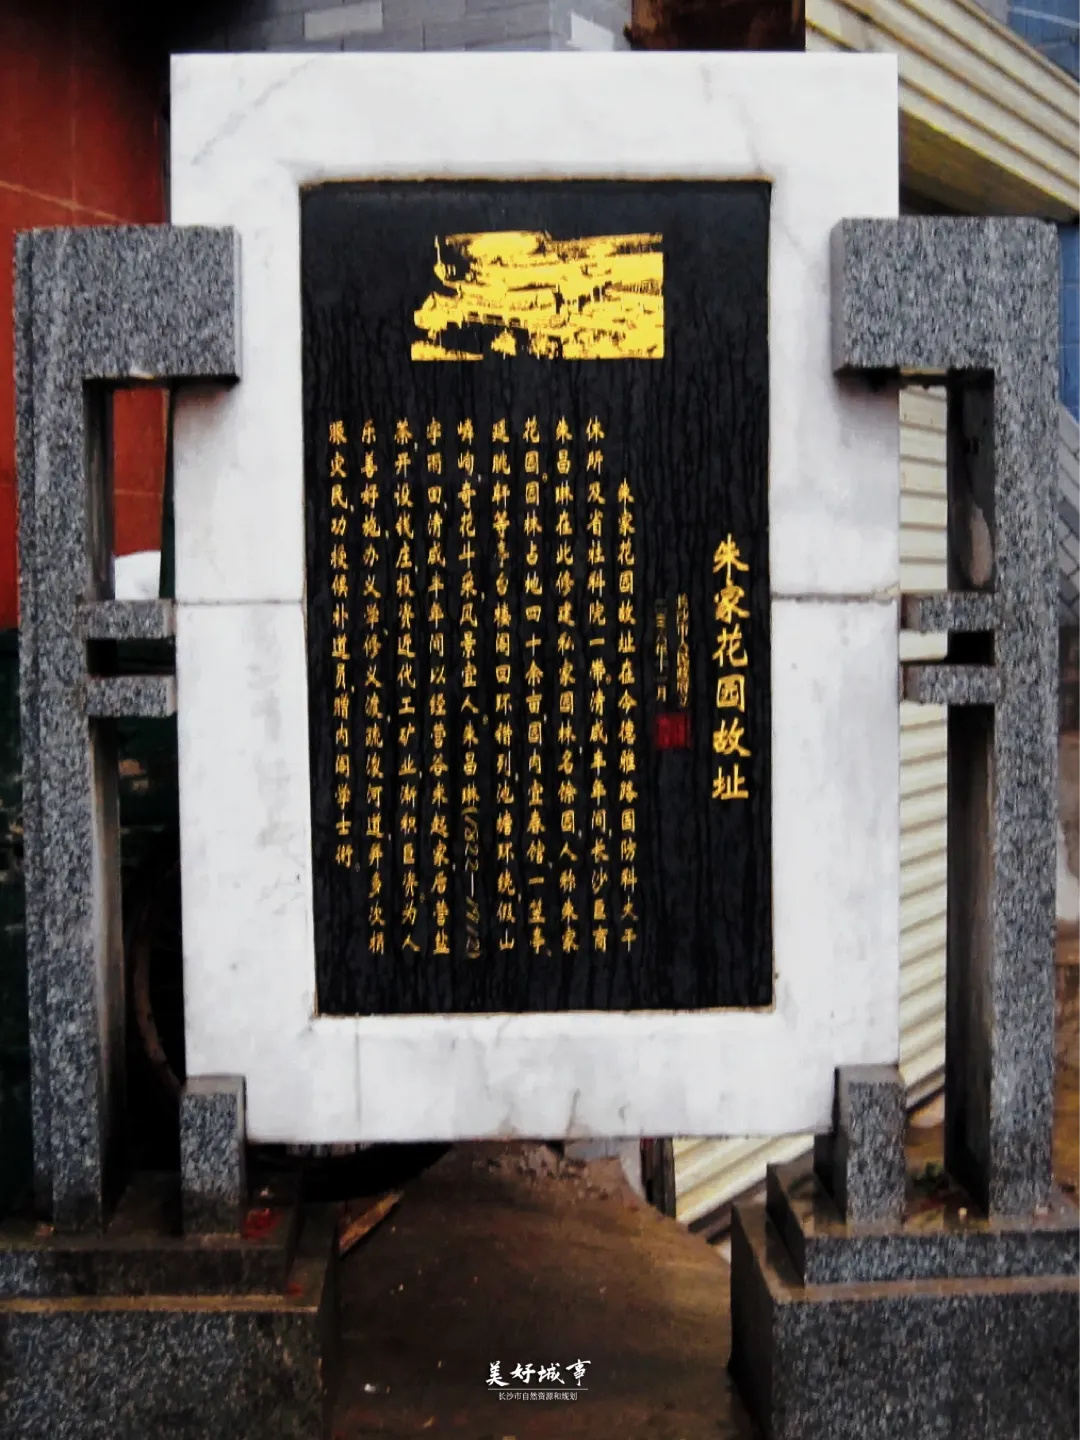 朱家花园故址
年十一月
朱家花园故址在今德雅路国防科大干
休所及省社科院一带。清咸丰年间,长沙巨商
朱昌琳在此修建私家园林,名馀园,人称朱家
花园。园林占地四十余亩,园内宜春馆、一笠亭、
延眺轩等亭台楼阁回环错列,池塘环绕,假山
嶙峋,奇花斗采,风景宜人。朱昌琳(1822—1912)
字雨田,清咸丰年间以经营谷米起家,后营盐
茶,开设钱庄,投资近代工矿业,渐积巨资。为人
乐善好施,办义学,修义渡,疏浚河道,并多次捐
赈灾民,功授候补道员,赠内阁学士衔。
美好城事
长沙市自然资源和规划